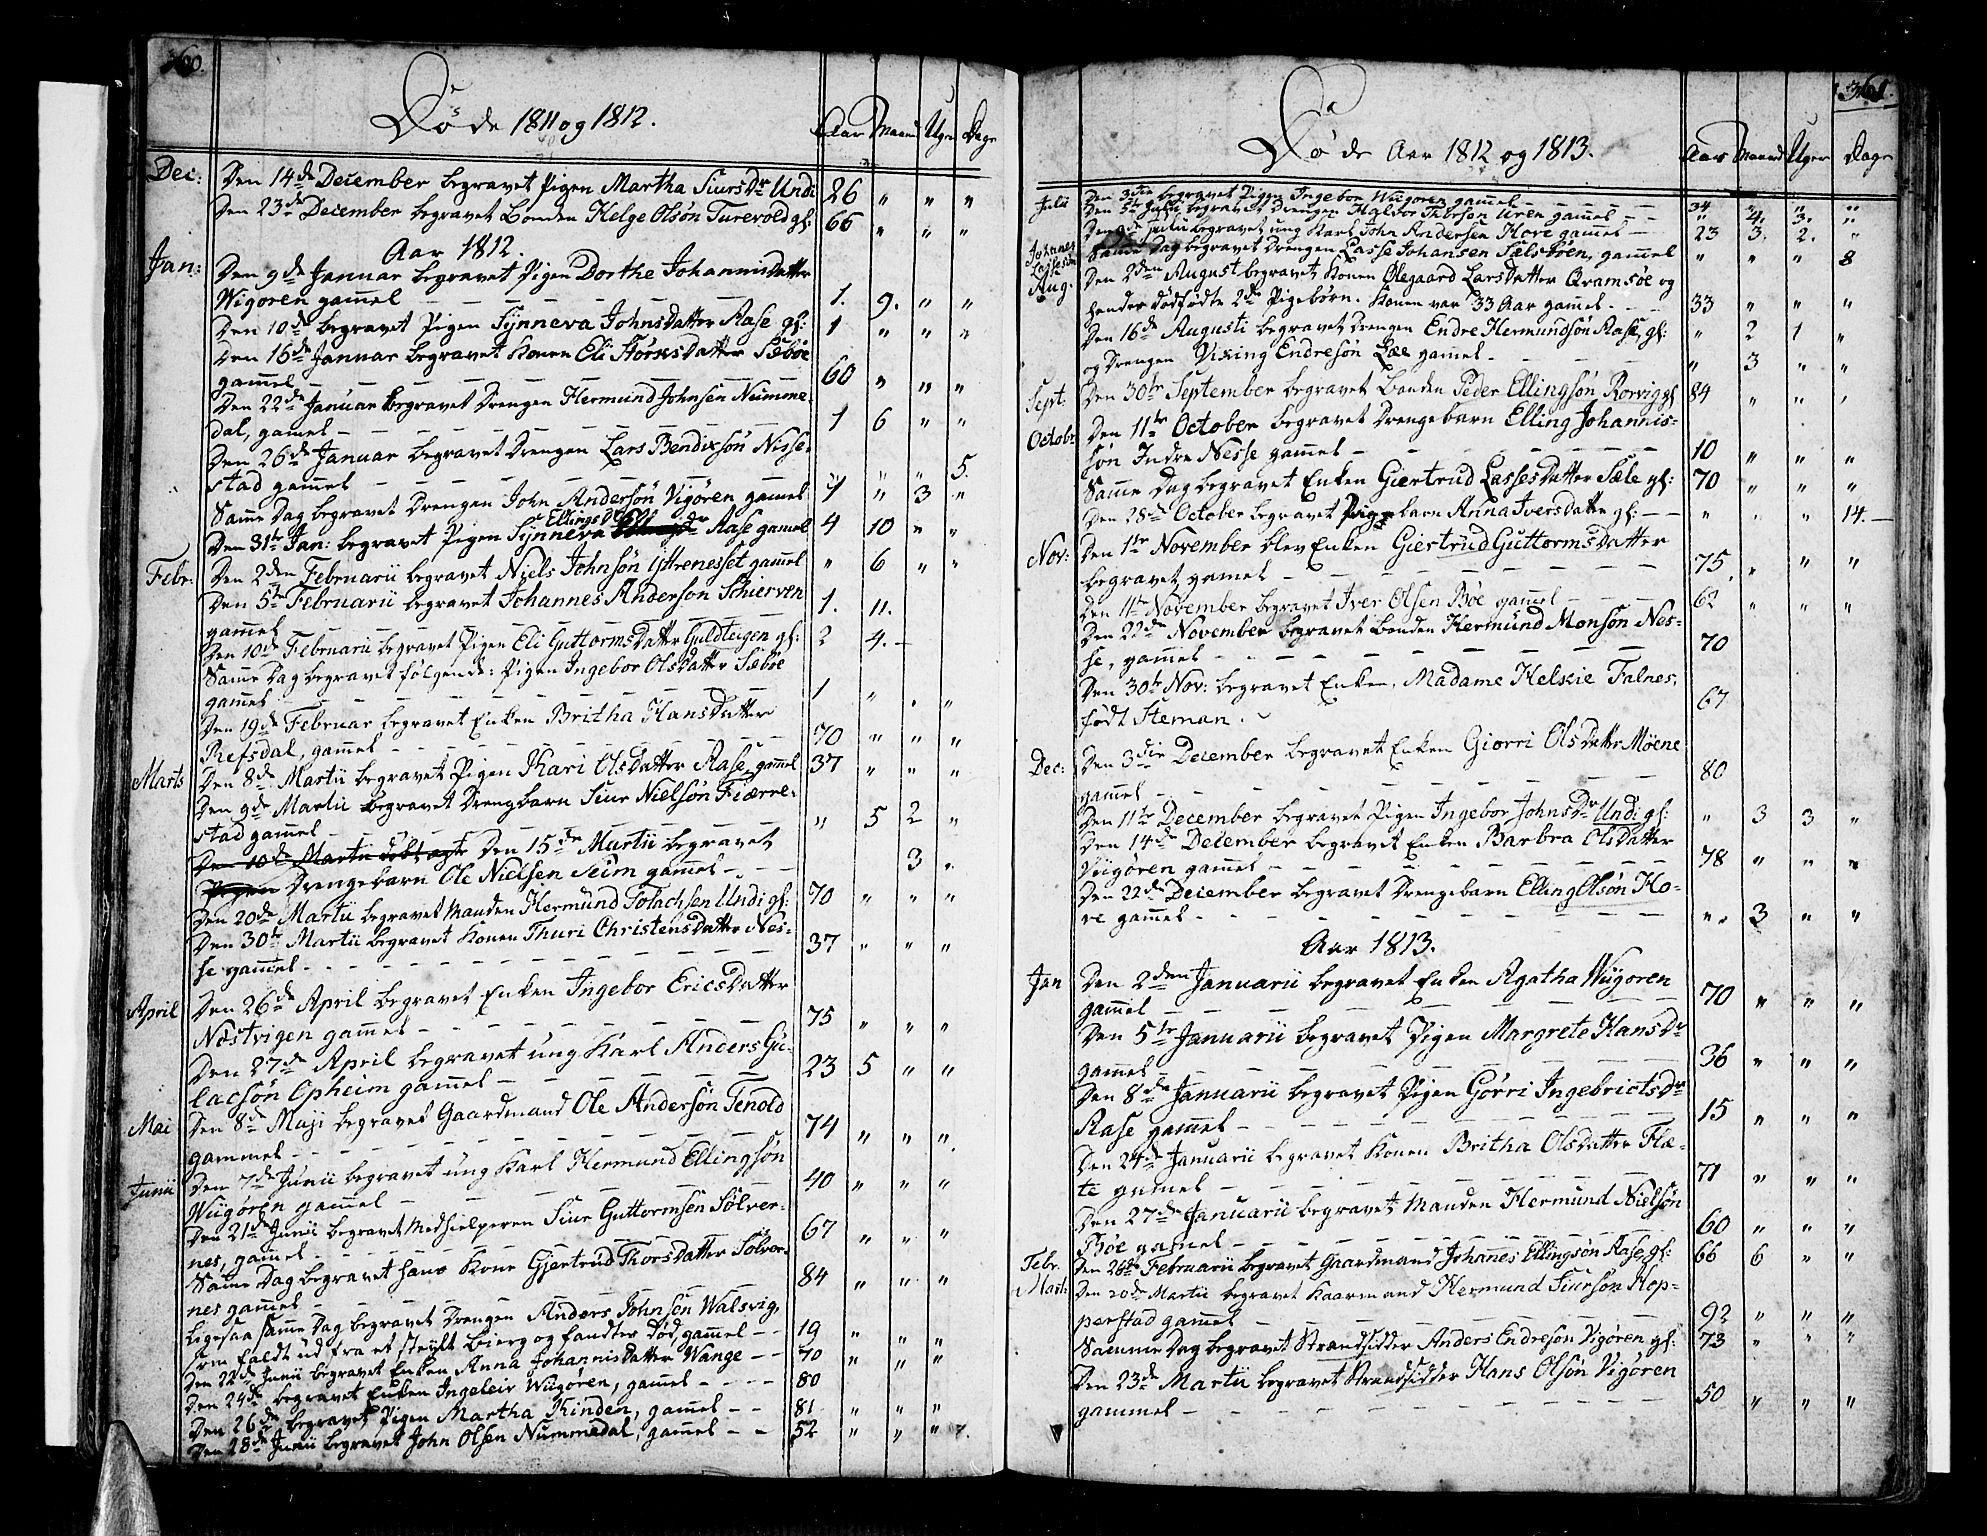 360.
Døde 1811 og 1812.
Aar Maan Uger Dage
Dec: Den 14de December begravet Pigen Martha SiursDr Undi 26 " " "
Den 23de December begravet Bonden Helge Olsøn Turevold gl: 66 " " "
Aar 1812.
Jan: Den 9de Januar begravet Pigen Dorthe Johannisdatter
Wigøren gammel — 1. 9. " "
Den 10de begravet Pigen Synneva JohnsDatter Aase gl: 1 " " "
Den 16de Januar begravet Konen Eli StørksDatter Sæbøe
gammel — 60 " " "
Den 22de Januar begravet Drengen Hermund Johnsen Numme-
dal, gamel — 1 6 " "
Den 26de Januar begravet Drengen Lars Bendixsøn Nisse-
stad gammel — " " " 5.
Samme Dag begravet Drengen John Andersøn Vigøren gammel 1 " 3 "
Den 31te Jan: begravet Pigen Synneva EllingsDr Aase gamel 4 10 " "
Febr: Den 2den Februarii begravet Niels Johnsøn Yttrenesset gammel " 6 " "
Den 5te Februarii begravet Johannes Anderson Schierven
gammel — 1. 11.
Den 10de Februarii begravet Pigen Eli GuttormsDatter Guldteigen gl: 2 4. —
Samme Dag begravet følgende: Pigen Ingebor OlsDatter Sæbøe
gammel — 1 " " "
Den 19de Februar begravet Enken Britha HansDatter
Refsdal, gammel — 70 " " "
Marts Den 8de Martii begravet Pigen Kari OlsDatter Aase, gammel 37 " " "
Den 9de Martii begravet Drengbarn Siur Nielsøn Fiærre-
stad gammel — " 5 2 "
Den 10de Martii Den 15de Martii begravet
Pigen Drengebarn Ole Nielsen Seim gammel — 3 "
Den 20de Martii begravet Manden Hermund Torlachsen Undi gl: 70 " " "
Den 30te Martii begravet Konen Thuri ChristensDatter Nes-
se gammel — 37 " " "
April Den 26de April begravet Enken Ingebor EricsDatter
Næstvigen gammel — 75 " " "
Den 27de April begravet ung Karl Anders Gu-
lacsøn Opheim gammel — 23 5 " "
Mai Den 8de Maji begravet Gaardmand Ole Andersøn Tenold
gammel — 74 " " "
Junii Den 7de Junii begravet ung Karl Hermund Ellingsøn
Wiigøren gammel — 40 " " "
Den 21de Junii begravet Medhielperen Siur Guttormsen Sølver-
nes, gammel — 67 " " "
Samme Dag begravet hans Kone Gjertrud ThorsDatter Sølver-
nes gammel — 84 " " "
Ligesaa samme Dag begravet Drengen Anders Johnsen Walsvig,
som faldt ud fra et steylt Bierg og fandtes død, gammel — 19 " " "
Den 22de Junii begravet Enken Anna JohannisDatter Wange — 70 " " "
Den 24de begravet Enken Ingeleir Wiigøren, gammel — 80
Den 26de begravet Pigen Martha Kinden, gammel — 81 " " "
Den 28de Junii begravet John Olsen Nummedal, gammel — 52 " " "
361.
Døde Aar 1812 og 1813.
Aar Maaned Uger Dage
Julii Den 3die begravet Pigen Ingebor Wiigøren gammel — 34 " " "
Den 5te Julii begravet Drengen Haldor Thorsen Uren gammel — " 4. 3. "
Den 9de Julii begravet ung Karl John Andersen Hove gammel — 23 3. 2. "
Johannes Lassesøn Samme Dag begravet Drengen Lasse Johansen Sælsbøen, gammel " " " 8
Aug. Den 2den August begravet Konen Ølegaard LarsDatter Qvamsøe og
hendes dødfødte 2de Pigebørn. Konen var 33 Aar gammel. — 33 " " "
Den 16de Augusti begravet Drengen Endre Hermundsøn Aase, gl: " 2 1 "
og Drengen Viking Endresøn Læe gamel — " 3 " "
Sept: Den 30te September begravet Bonden Peder Ellingsøn Rørvig gl 84 " " "
Octobr Den 11te October begravet Drengebarn Elling Johannis-
søn Indre Nesse gammel — 10 " " "
Samme Dag begravet Enken Giertrud LassesDatter Sæle gl: 70 " " "
Den 28de October begravet Pigebarn Anna IversDatter gl: — " " " 14. —
Nov: Den 1te November blev Enken Giertrud GuttormsDatter
begravet, gamel — 75, " " "
Den 11te November begravet Iver Olsen Bøe gammel — 62 " " "
Den 22de November begravet Bonden Hermund Monsøn Nes-
se, gammel — 70
Den 30te Nov: begravet Enken, Madame Helskie Falnes,
født Steman. 67
Dec: Den 3die December begravet Enken Giørri OlsDatter Møene
gammel — 80
Den 11te December begravet Pigen Ingebor JohnsDr Undi gl: " 3 3 "
Den 14de December begravet Enken Barbra OlsDatter
Viigøren gammel — 78 " " "
Den 22de December begravet Drengebarn Elling Olsøn Ho-
ve gammel — " 3 " "
Aar 1813.
Jan Den 2den Januarii begravet Enken Agatha Wiigøren
gammel — 70 " " "
Den 5te Januarii begravet Pigen Margrete HansDr
gammel — 36 " " "
Den 8de Januarii begravet Pigen Gørri IngebrictsDr
Aase gammel — 15 " " "
Den 24de Januarii begravet Konen Britha OlsDatter Flæ-
te gamel — 71 " " "
Den 27de Januarii begravet Manden Hermund Nielsøn
Bøe gamel — 60 " " "
Febr. Den 26de Februarii begravet Gaardmand Johanes Ellingsøn Aase, gl: 66 6 " "
Mart: Den 20de Martii begravet Kaarmand Hermund Siursøn Hop-
perstad gammel — 92 " " "
Samme Dag begravet Strandsidder Anders Endresøn Vigøren gl: 73 " " "
Den 23de Martii begravet Strandsidder Hans Olsøn Vigøren
gammel — 50 " " "